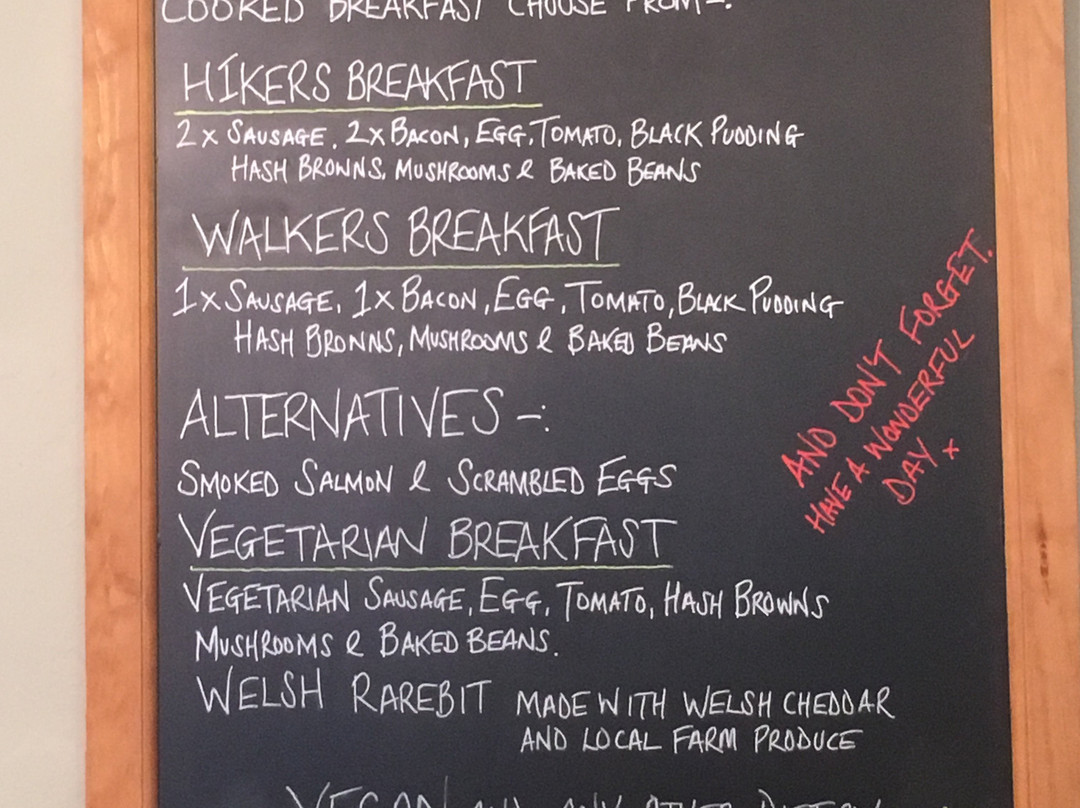 COOKED BREAKFAST CHOOSE FROM-:
HIKERS BREAKFAST
2 x SAUSAGE, 2 x BACON, EGG, TOMATO, BLACK PUDDING
HASH BROWNS, MUSHROOMS & BAKED BEANS
WALKERS BREAKFAST
1 x SAUSAGE, 1 x BACON, EGG, TOMATO, BLACK PUDDING
HASH BROWNS, MUSHROOMS & BAKED BEANS
ALTERNATIVES -:
SMOKED SALMON & SCRAMBLED EGGS
VEGETARIAN BREAKFAST
VEGETARIAN SAUSAGE, EGG, TOMATO, HASH BROWNS
MUSHROOMS & BAKED BEANS.
WELSH RAREBIT MADE WITH WELSH CHEDDAR
AND LOCAL FARM PRODUCE
AND DON'T FORGET.
HAVE A WONDERFUL
DAY x
VEGAN AND ANY OTHER